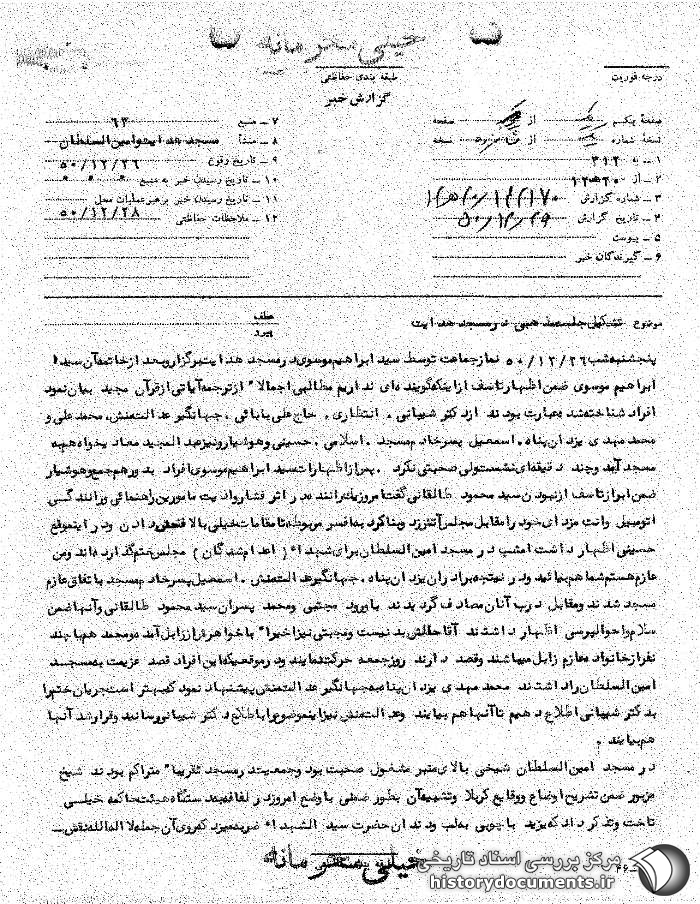 خیلی محرمانه
طبقه بندی حفاظتی
درجه فوریت
گزارش خبر
صفحه یکم از صفحه
نسخه شماره از نسخه
۱ ــ به ۳۱۲
۲ ــ از ۱۲۵۲۰
۳ ــ شماره گزارش
۴ ــ تاریخ گزارش ۵۰/۱۲/۲۹
۵ ــ پیوست
۶ ــ گیرندگان خبر
۷ ــ منبع ۶۳
۸ ــ منشأ مسجد هدایت و امین السلطان
۹ ــ تاریخ وقوع ۵۰/۱۲/۲۶
۱۰ ــ تاریخ رسیدن خبر به منبع
۱۱ ــ تاریخ رسیدن خبر برهبر عملیات محل
۱۲ ــ ملاحظات حفاظتی ۵۰/۱۲/۲۸
موضوع تشکیل جلسه مذهبی در مسجد هدایت
عطف
پیرو
پنجشنبه شب ۵۰/۱۲/۲۶ نماز جماعت توسط سید ابراهیم موسوی در مسجد هدایت برگزار و بعد از خاتمه آن سید
ابراهیم موسوی ضمن اظهار تاسف از اینکه گوینده ای نداریم مطالبی اجمالا" از ترجمه آیاتی از قرآن مجید بیان نمود
افراد شناخته شده عبارت بودند از دکتر شیبانی . انتظاری . حاج علی بابائی ، جهانگیر عدالتمنش، محمد علی و
محمد مهدی یزدان پناه . اسمعیل پسر خادم مسجد . اسلامی . حسینی و هوشیار و نیز عبدالمجید معادیخواه هم به
مسجد آمد و چند دقیقه ای نشست ولی صحبتی نکرد . پس از اظهارات سید ابراهیم موسوی افراد بدور هم جمع و هوشیار
ضمن ابراز تاسف از نبودن سید محمود طالقانی گفت امروز یک راننده در اثر فشار و اذیت مامورین راهنمائی و رانندگی
اتومبیل وانت مزدای خود را مقابل مجلس آتش زد و بنا کرد به افسر مربوطه تا مقامات خیلی بالا فحش دادن و در اینموقع
حسینی اظهار داشت امشب در مسجد امین السلطان برای شهداء ( اعدام شدگان ) مجلس ختم گذارده اند و من
عازم هستم شما هم بیائید و در نتیجه برادران یزدان پناه . جهانگیر عدالتمنش . اسمعیل پسر خادم مسجد با تفاق عازم
مسجد شدند و مقابل درب آنان مصادف گردیدند با ورود مجتبی و محمد پسران سید محمود طالقانی و آنها ضمن
سلام و احوالپرسی اظهار داشتند آقا حالش بد نیست و مجتبی نیز اخیرا" با خواهرش از زابل آمده و محمد هم با چند
نفر از خانواده عازم زابل میباشند و قصد دارند روز جمعه حرکت نمایند و در موقعیکه این افراد قصد عزیمت به مسجد
امین السلطان را داشتند محمد مهدی یزدان پناه به جهانگیر عدالتمنش پیشنهاد نمود که بهتر است جریان ختم را
به دکتر شیبانی اطلاع دهیم تا آنها هم بیایند و عدالتمنش نیز این موضوع را باطلاع دکتر شیبانی رسانید و قرار شد آنها
هم بیایند .
در مسجد امین السلطان شیخی بالای منبر مشغول صحبت بود و جمعیت در مسجد تقریبا" متراکم بودند شیخ
مزبور ضمن تشریح اوضاع و وقایع کربلا و تشبیه آن بطور ضمنی با وضع امروز در لفافه به دستگاه هیئت حاکمه خیلی
تاخت و تذکر داد که یزید با چوبی به لب و دندان حضرت سید الشهداء ضربه میزد که روی آن جمله لا اله الا الله نقش ــ
خیلی محرمانه
مرکز بررسی اسناد تاریخی
historydocuments.ir